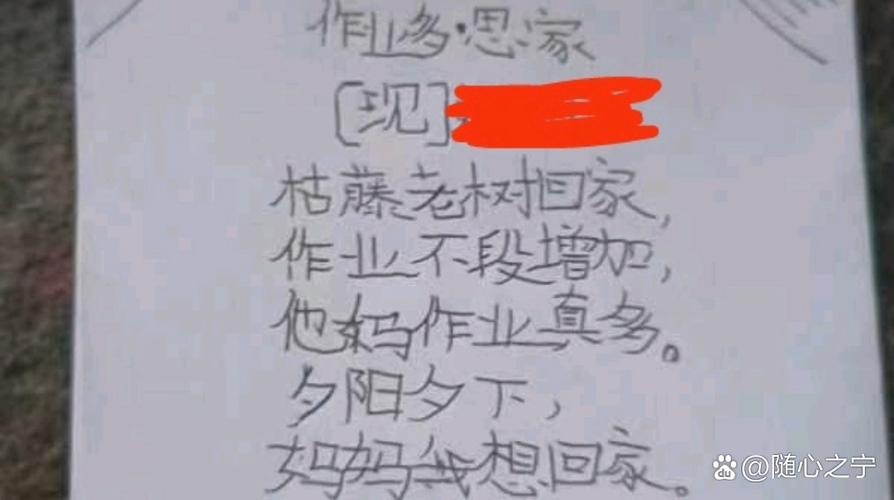 作业多·思家
[现]
枯藤老树回家,
作业不段增加,
他妈作业真多。
夕阳夕下,
妈妈我想回家。
du @随心之宁